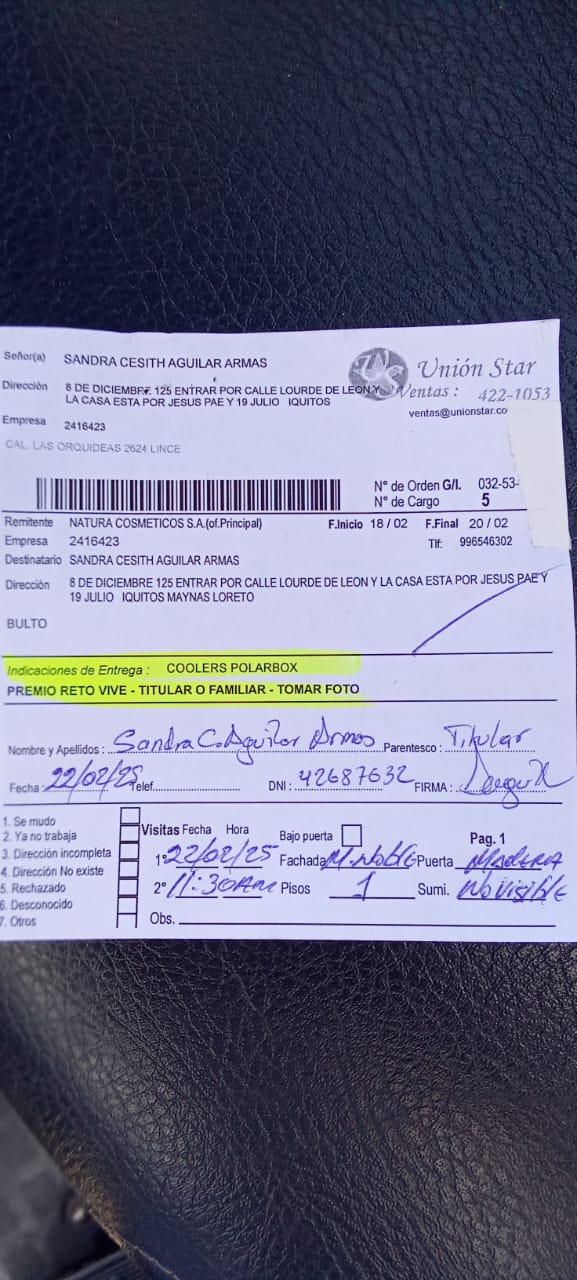 Señor(a) SANDRA CESITH AGUILAR ARMAS
Unión Star
Dirección 8 DE DICIEMBRE 125 ENTRAR POR CALLE LOURDE DE LEON Y
LA CASA ESTA POR JESUS PAE Y 19 JULIO IQUITOS
Ventas : 422-1053
ventas@unionstar.co
Empresa 2416423
CAL. LAS ORQUIDEAS 2624 LINCE
N° de Orden G/I. 032-53-
N° de Cargo 5
Remitente NATURA COSMETICOS S.A.(of.Principal) F.Inicio 18 / 02 F.Final 20 / 02
Empresa 2416423 Tlf: 996546302
Destinatario SANDRA CESITH AGUILAR ARMAS
Dirección 8 DE DICIEMBRE 125 ENTRAR POR CALLE LOURDE DE LEON Y LA CASA ESTA POR JESUS PAE Y
19 JULIO IQUITOS MAYNAS LORETO
BULTO
Indicaciones de Entrega : COOLERS POLARBOX
PREMIO RETO VIVE - TITULAR O FAMILIAR - TOMAR FOTO
Nombre y Apellidos : Sandra C. Aguilar Armas Parentesco : Titular
Fecha : 22/02/25 Telef. DNI : 42687632 FIRMA :
1. Se mudo
2. Ya no trabaja
3. Dirección incompleta
4. Dirección No existe
5. Rechazado
6. Desconocido
7. Otros
Visitas Fecha Hora Bajo puerta Pag. 1
1° 22/02/25 Fachada M. Noble Puerta MADERA
2° 11:30AM Pisos 1 Sumi. No visible
Obs.